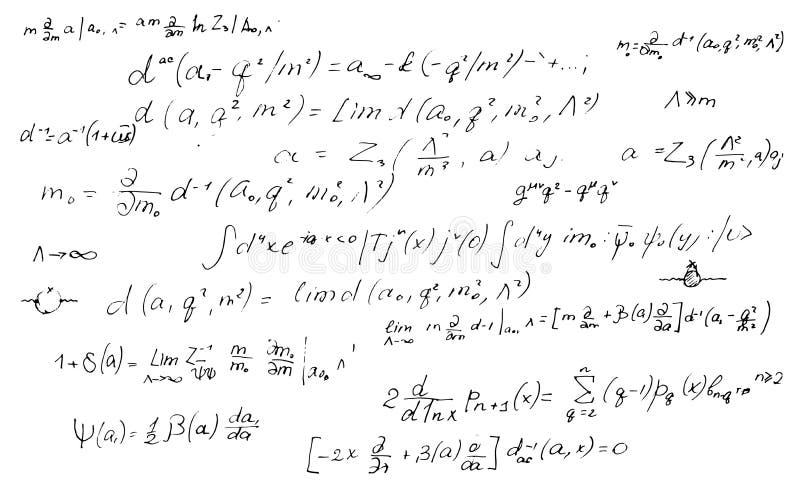 m ∂/∂m a | a₀, Λ = am ∂/∂m ln Z₃ | Λ₀, Λ
m₀ = ∂/∂m₀ d⁻¹(a₀, q², m₀², Λ²)
d^ac(a, - q²/m²) = a∞ - k(-q²/m²) - ` + ... ;
d(a, q², m²) = Lim d(a₀, q², m₀², Λ²)
Λ ≫ m
d⁻¹ = a⁻¹(1 +
a = Z₃(Λ²/m², a)
a = Z₃(Λ²/m², a)aj
m₀ = ∂/∂m₀ d⁻¹(a₀, q², m₀², Λ²)
g^μν q² - q^μ q^ν
Λ → ∞
∫d⁴x e <0|Tj^μ(x) j^ν(0) ∫d⁴y im₀ : ψ̄₀ ψ₀(y) : |
d(a, q², m²) = lim d(a₀, q², m₀², Λ²)
lim Λ→∞ m ∂/∂m d⁻¹|a₀, Λ = [m ∂/∂m + β(a) ∂/∂a] d⁻¹(a, - q²/m²)
1 + δ(a) = Lim Λ→∞ Z⁻¹ψ̄ψ m/m₀ ∂m₀/∂m | Λ
2 d/dlnx Pₙ₊₁(x) = Σ n q=2 (q-1)p_q(x)b n≥2
Ψ(a,) = 1/2 β(a) da,/da
[-2x ∂/∂ + β(a) ∂/∂a] d⁻¹ac(a, x) = 0
dreamstime